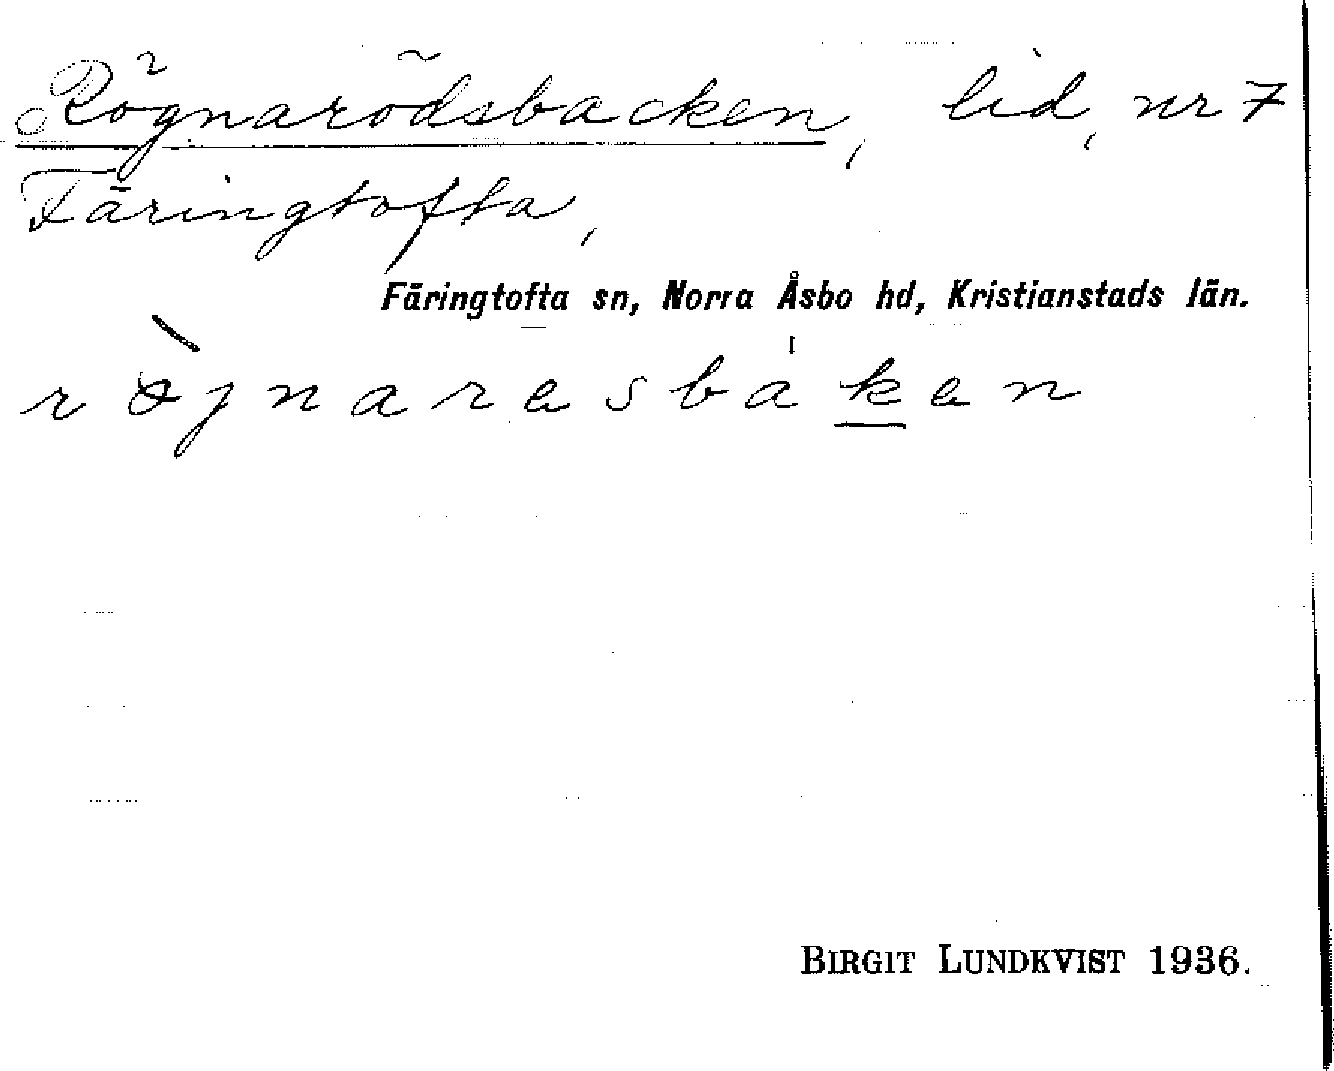 Rögnarödsbacken, lid, nr 7
Färingtofta,
Färingtofta sn, Norra Åsbo hd, Kristianstads län.
rø̀jnaresbáken
BIRGIT LUNDKVIST 1936.